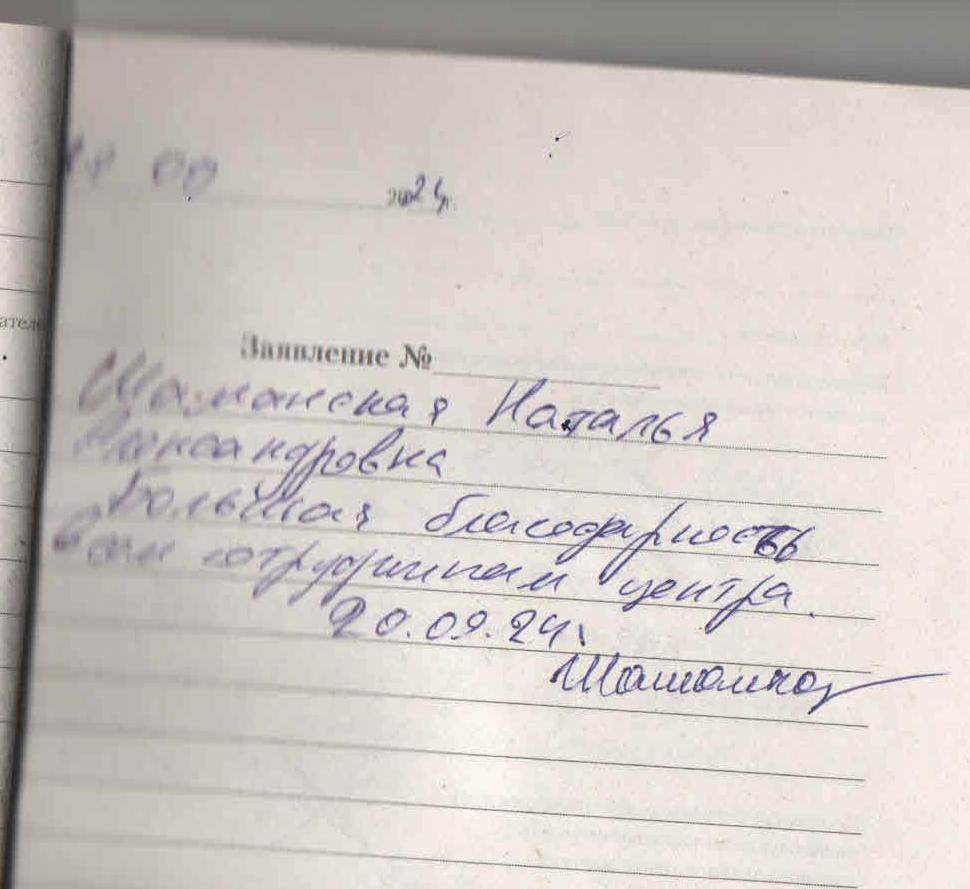 2024г.
ател
Заявление №
Шаманская Наталья
Александровна
Большая благодарность
Вам сотрудникам центра.
20.09.24г.